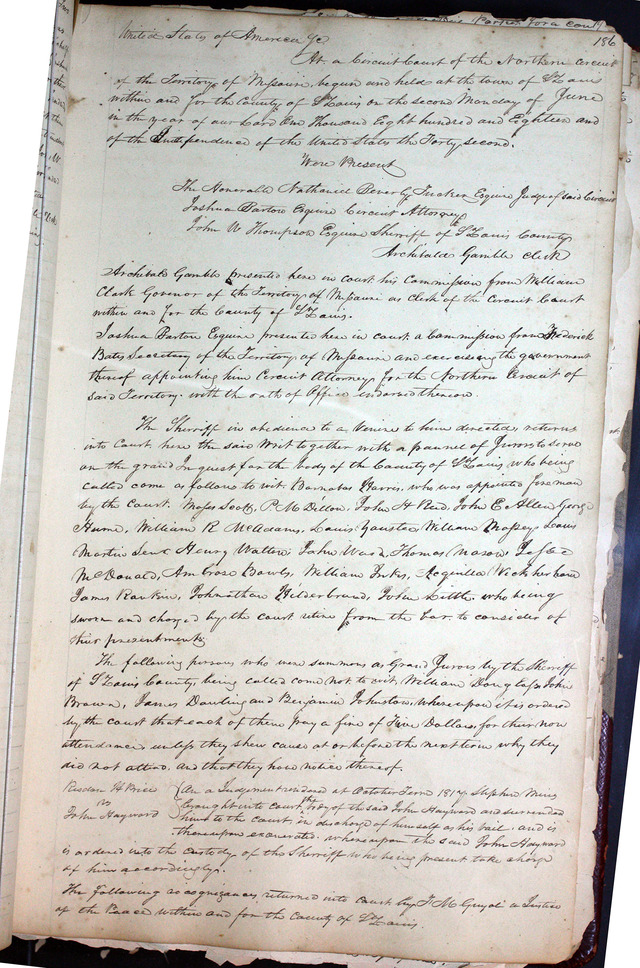 186
United States of America Sc
At a Circuit Court of the Northern Circuit
of the Territory of Missouri, begun and held at the town of St Louis
within and for the County of St Louis on the second Monday of June
in the year of our Lord One Thousand Eight hundred and Eighteen and
of the Independence of the United States the Forty second.
Were Present
The Honorable Nathaniel Bever Ly Tucker Esquire Judge of said Circuit
Joshua Barton Esquire Circuit Attorney
John W Thompson Esquire Sherriff of St Louis County
Archibald Gamble clerk
Archibald Gamble presented here in court his Commission from William
Clark Govenor of the Territory of Missouri as clerk of the Circuit Court
within and for the County of St Louis.
Joshua Barton Esquire presents here in court a Commission from Frederick
Bates Secretary of the Territory of Missouri and exercising the government
thereof appointing him Circuit Attorney for the Northern Circuit of
said Territory with the oath of Office indorsed thereon
The Sherriff in obedience to a Venire to him directed returns
into Court here the said Writ together with a pannel of Jurors to serve
on the grand Inquest for the body of the County of St Louis who being
called come as follows to wit. Barnabas Harris, who was appointed foreman
by the Court. Moses Scott, P. M. Dillon, John H Reid, John E. Allen George
Hume, William R McAdams, Louis William Massey Louis
Martin Senr Henry Walton John Ward, Thomas Mason
McDonald, Ambrose Bowls, William Inks, Acquilla
James Rankin, Johnathan Hilderbrand, John Little who being
sworn and charged by the court retire from the bar to consider of
their presentments
The following persons who were summons as Grand Jurors by the Sherriff
of St Louis County, being called come not to wit, William Douglass John
Brown, James Dowling and Benjamin Johnston, whereupon it is ordered
by the court that each of them pay a fine of Five Dollars, for their non
attendance unless they shew cause at or before the next term why they
did not attend, and that they have notice thereof.
Risdon H Price On a Judgement rendered at October Term 1817. Stephen
vs brought into court the body of the said John Hayward and surrended
John Hayward him to the court in discharge of himself as his bail. and is
thereupon exonerated. whereupon the said John Hayward
is ordered into the custody of the Sherriff who being present take charge
of him accordingly.
The following recognizances, returned into court by F. M. Guyol a Justice
of the Peace within and for the County of St Louis.